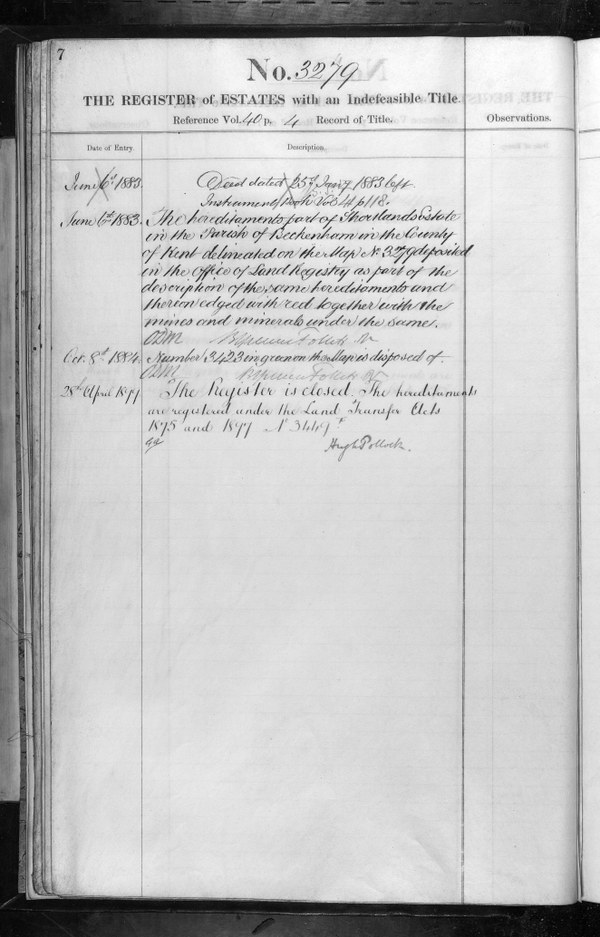 7
No. 3279
THE REGISTER of ESTATES with an Indefeasible Title.
Reference Vol. 40 p. 4 Record of Title.
Observations.
Date of Entry.
Description.
June 6th 1883.
Deed dated 25th Jany 1883 left
Instrument Book Vol 14 p 118.
June 6th 1883.
The hereditaments part of Shortlands Estate
in the Parish of Beckenham in the County
of Kent delineated on the Map No. 3279 deposited
in the Office of Land Registry as part of the
description of the same hereditaments and
thereon edged with red together with the
mines and minerals under the same.
Follett
Oct. 8th 1884.
Number 3423 in green on the Map is disposed of
Follett
28th April 1899
The Register is closed. The hereditaments
are registered under the Land Transfer Acts
1875 and 1897 No 3449
Hugh Pollock.